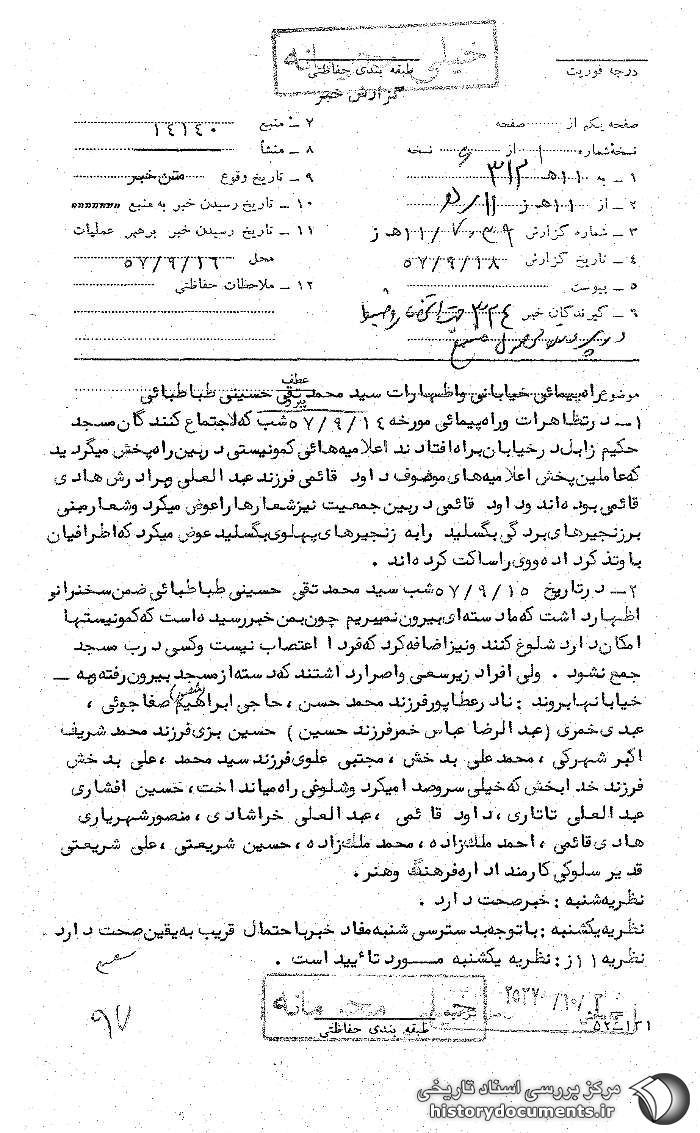 خیلی محرمانه
درجه فوریت
طبقه بندی حفاظتی
گزارش خبر
صفحه یکم از صفحه
نسخه شماره ۱ از نسخه
۱ ـ به ۱۱هـ ۳۱۲
۲ ـ از ۱۱هـ ز
۳ ـ شماره گزارش ۱۱/۷۰۳۹هـ ز
۴ ـ تاریخ گزارش ۵۷/۹/۱۸
۵ ـ پیوست
۶ ـ گیرندگان خبر ۳۲۴
۷ ـ منبع ۱۴۱۴۰
۸ ـ منشأ
۹ ـ تاریخ وقوع متن خبر
۱۰ ـ تاریخ رسیدن خبر به منبع
۱۱ ـ تاریخ رسیدن خبر برهبر عملیات
محل ۵۷/۹/۱۶
۱۲ ـ ملاحظات حفاظتی
عطف
پیروی
موضوع راه پیمائی خیابانی واظهارات سید محمد تقی حسینی طباطبائی
۱ـ در تظاهرات وراه پیمائی مورخه ۵۷/۹/۱۴ شب که اجتماع کنندگان مسجد
حکیم زابل در خیابان براه افتادند اعلامیه هائی کمونیستی در بین راه پخش میگردید
که عاملین پخش اعلامیه های موصوف داود قائمی فرزند عبدالعلی وبرادرش هادی
قائمی بوده اند وداود قائمی در بین جمعیت نیز شعارها را عوض میکرد وشعار مبنی
بر زنجیرهای بردگی بگسلید را به زنجیرهای پهلوی بگسلید عوض میکرد که اطرافیان
باو تذکر داده ووی را ساکت کرده اند .
۲ـ در تاریخ ۵۷/۹/۱۵ شب سید محمد تقی حسینی طباطبائی ضمن سخنرانی
اظهار داشت که ما دسته ای بیرون نمیبریم چون بمن خبر رسیده است که کمونیستها
امکان دارد شلوغ کنند ونیز اضافه کرد که فردا اعتصاب نیست وکسی درب مسجد
جمع نشود . ولی افراد زیر سعی واصرار داشتند که دسته از مسجد بیرون رفته وبه ـ
خیابانها بروند : نادر عطاپور فرزند محمد حسن ، حاجی ابراهیم صفاجوئی ،
عبدی خمری (عبدالرضا عباس خمر فرزند حسین) حسین بزی فرزند محمد شریف
اکبر شهرکی ، محمد علی بدخش ، مجتبی علوی فرزند سید محمد ، علی بدخش
فرزند خدابخش که خیلی سروصدا میکرد وشلوغی راه میانداخت ، حسین افشاری
عبدالعلی تاتاری ، داود قائمی ، عبدالعلی خراشادی ، منصور شهریاری
هادی قائمی ، احمد ملک زاده ، محمد ملک زاده ، حسین شریعتی ، علی شریعتی
قدیر سلوکی کارمند اداره فرهنگ وهنر .
نظریه شنبه : خبر صحت دارد .
نظریه یکشنبه : با توجه بدسترسی شنبه مفاد خبر با احتمال قریب به یقین صحت دارد .
نظریه ۱۱ز : نظریه یکشنبه مورد تائید است .
خیلی محرمانه
طبقه بندی حفاظتی
۹۷
مرکز بررسی اسناد تاریخی
historydocuments.ir